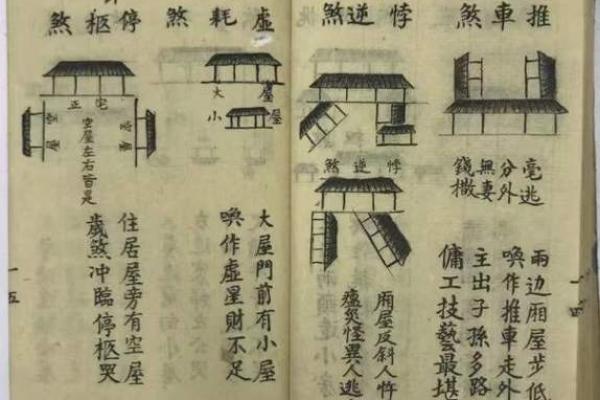 推車煞
毫逃
分外
無妻
錢撒
兩边廂屋步低
喚作推車走外
主出子孫多路
傭工技藝最堪
一四
悖逆煞
悖逆煞
廂屋反斜人忤
瘟災怪異人逃
虛耗煞
大屋
小屋
大屋門前有小屋
喚作虛星財不足
停柩煞
正宅
空屋
空屋
空屋左右皆是
住居屋旁有空屋
歲煞冲臨停柩哭
一五